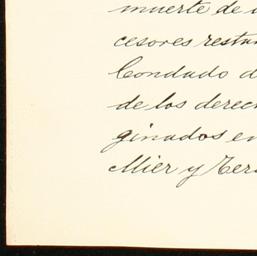 muerte de
cesores restau
Condado d
de los derech
ginados en
Mier y Ter